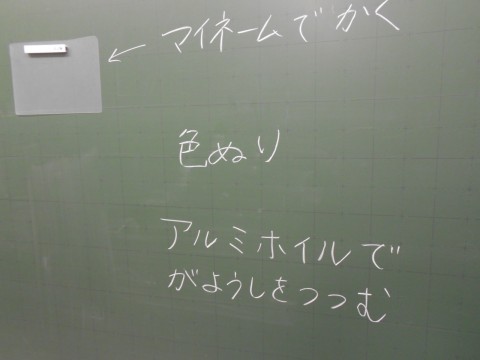 マイネームでかく
色ぬり
アルミホイルで
がようしをつつむ